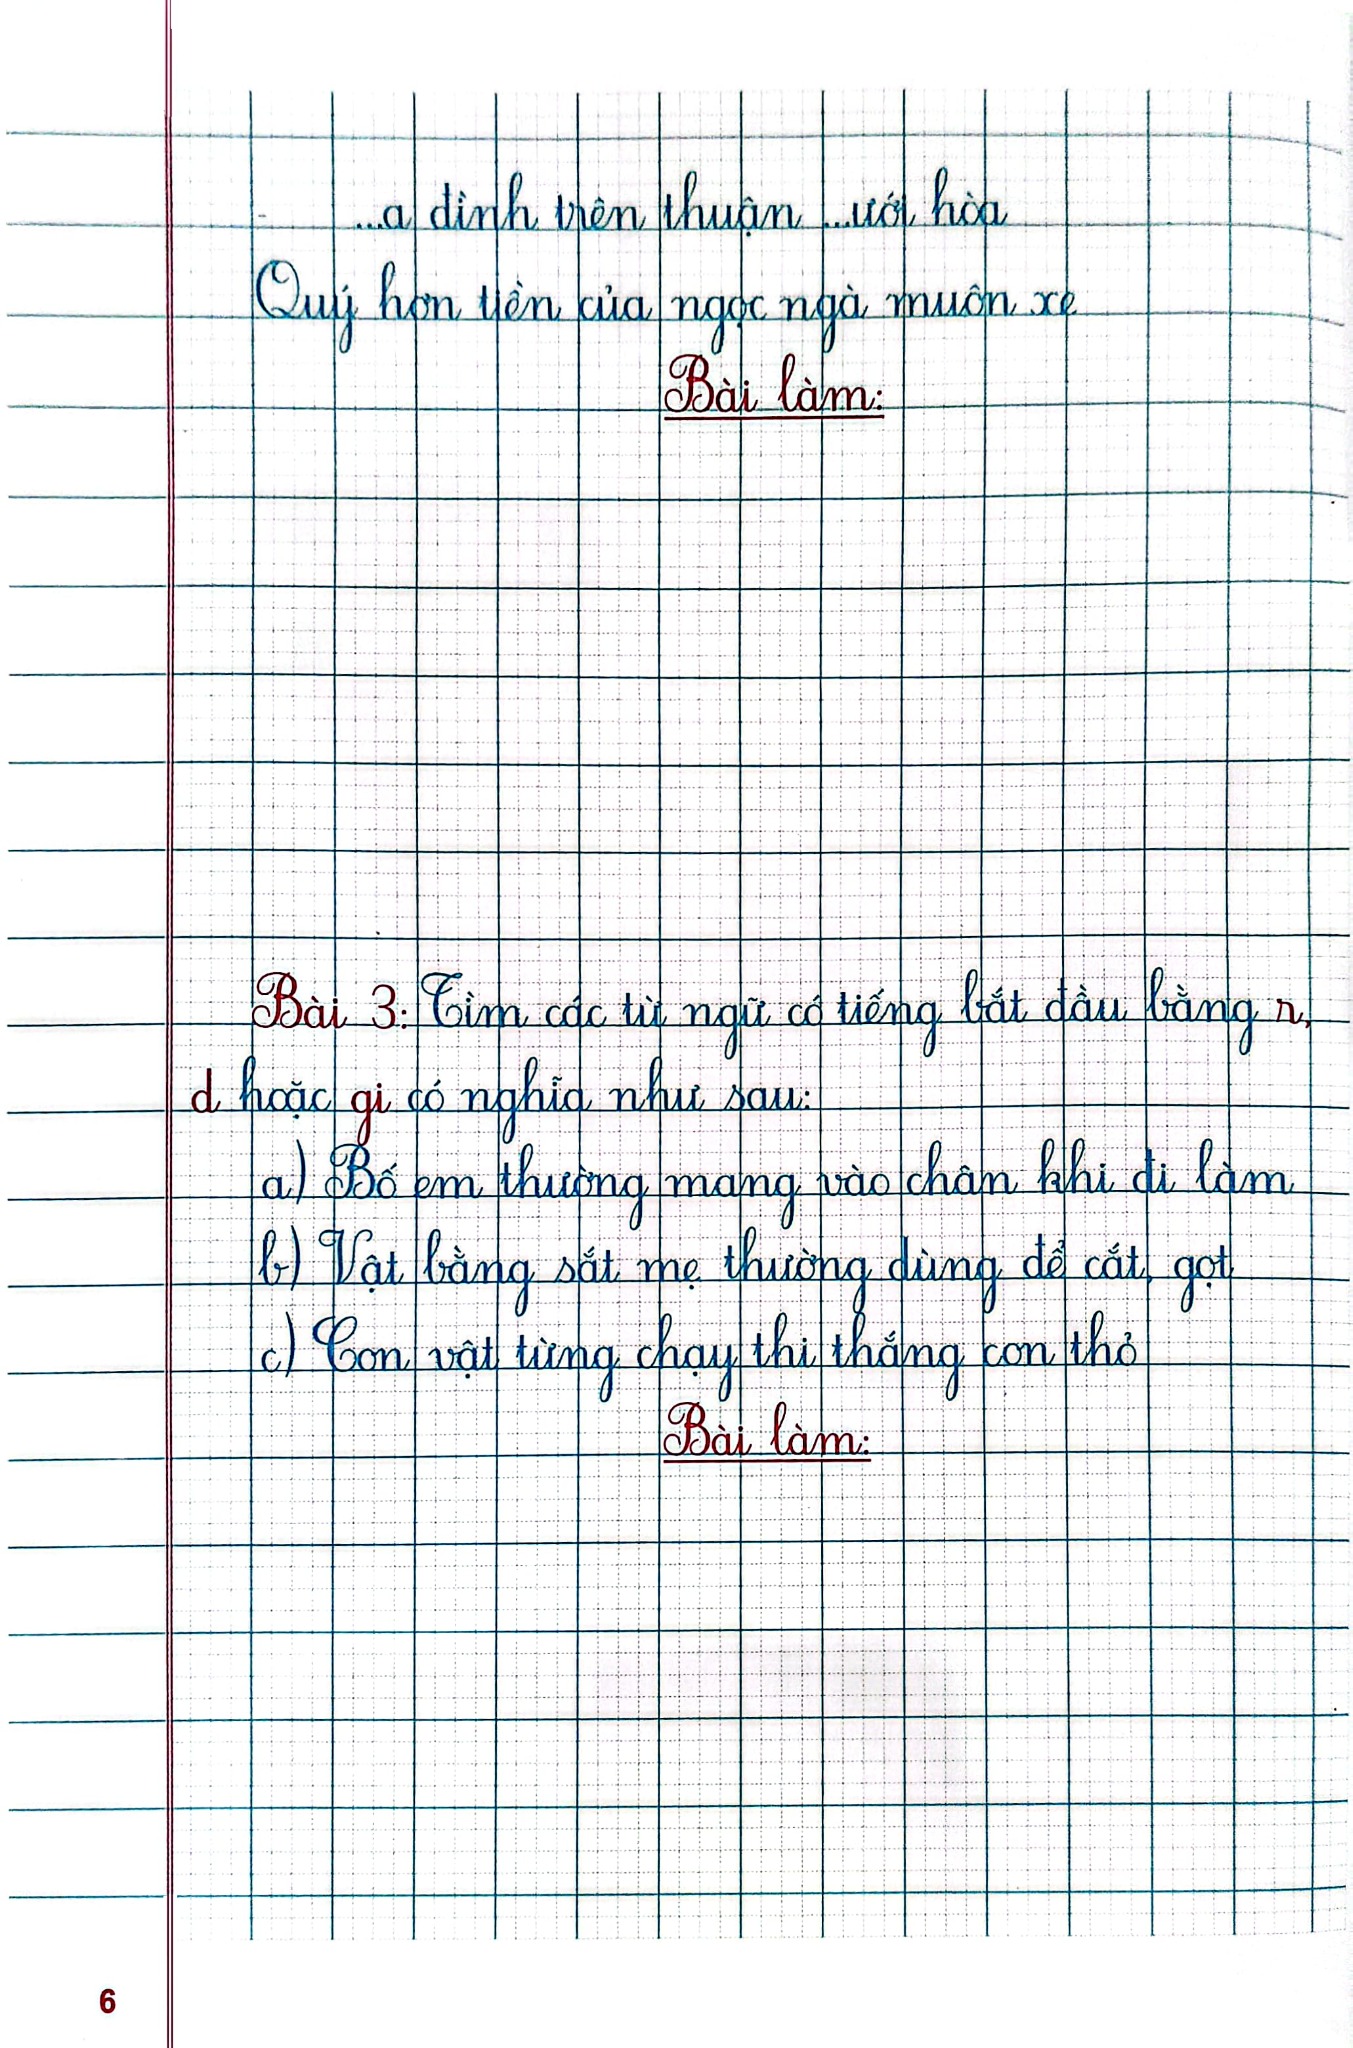 ...a đình trên thuận ...ưới hòa
Quý hơn tiền của ngọc ngà muôn xe
Bài làm:
Bài 3: Tìm các từ ngữ có tiếng bắt đầu bằng r,
d hoặc gi có nghĩa như sau:
a) Bố em thường mang vào chân khi đi làm
b) Vật bằng sắt mẹ thường dùng để cắt, gọt
c) Con vật từng chạy thi thắng con thỏ
Bài làm:
6